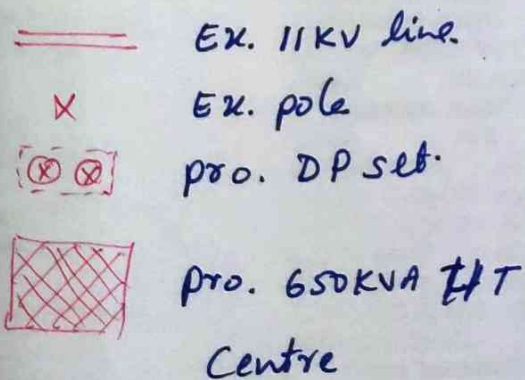 Ex. 11KV line.
Ex. pole
pro. DP set.
pro. 650KVA HT
Centre